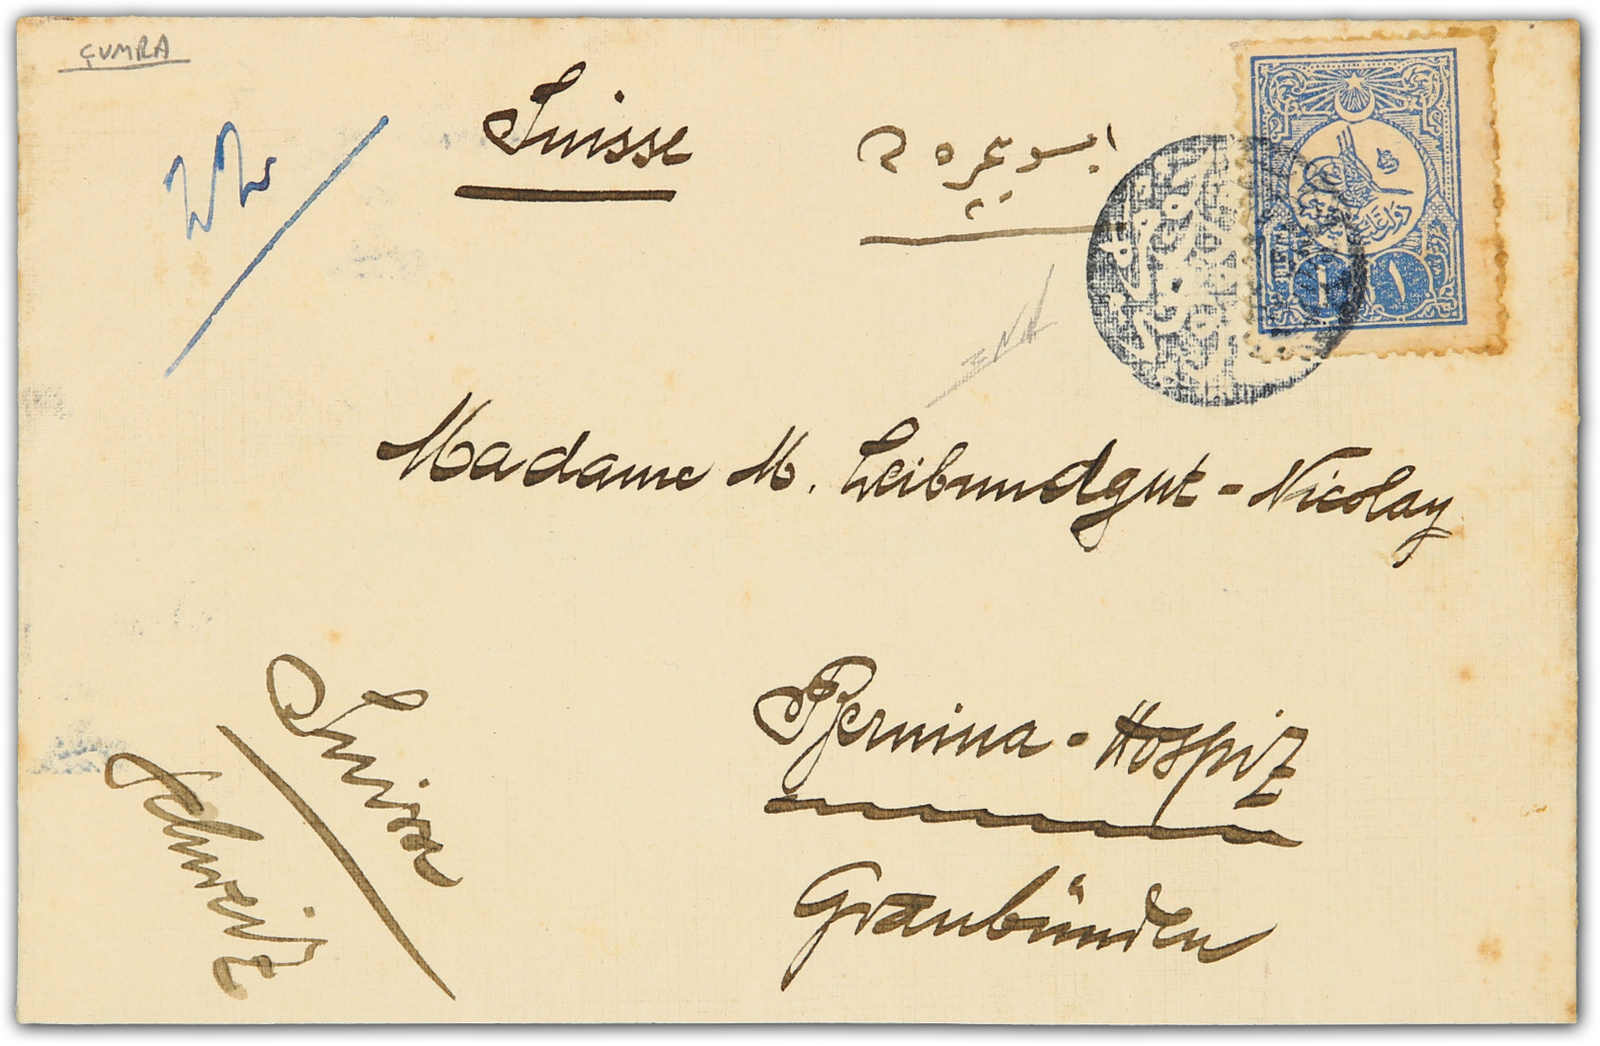 ÇUMRA
Suisse
Madame M. Leibundgut-Nicolay
Bernina-Hospiz
Graubünden
Suisse
Schweiz
١ ١